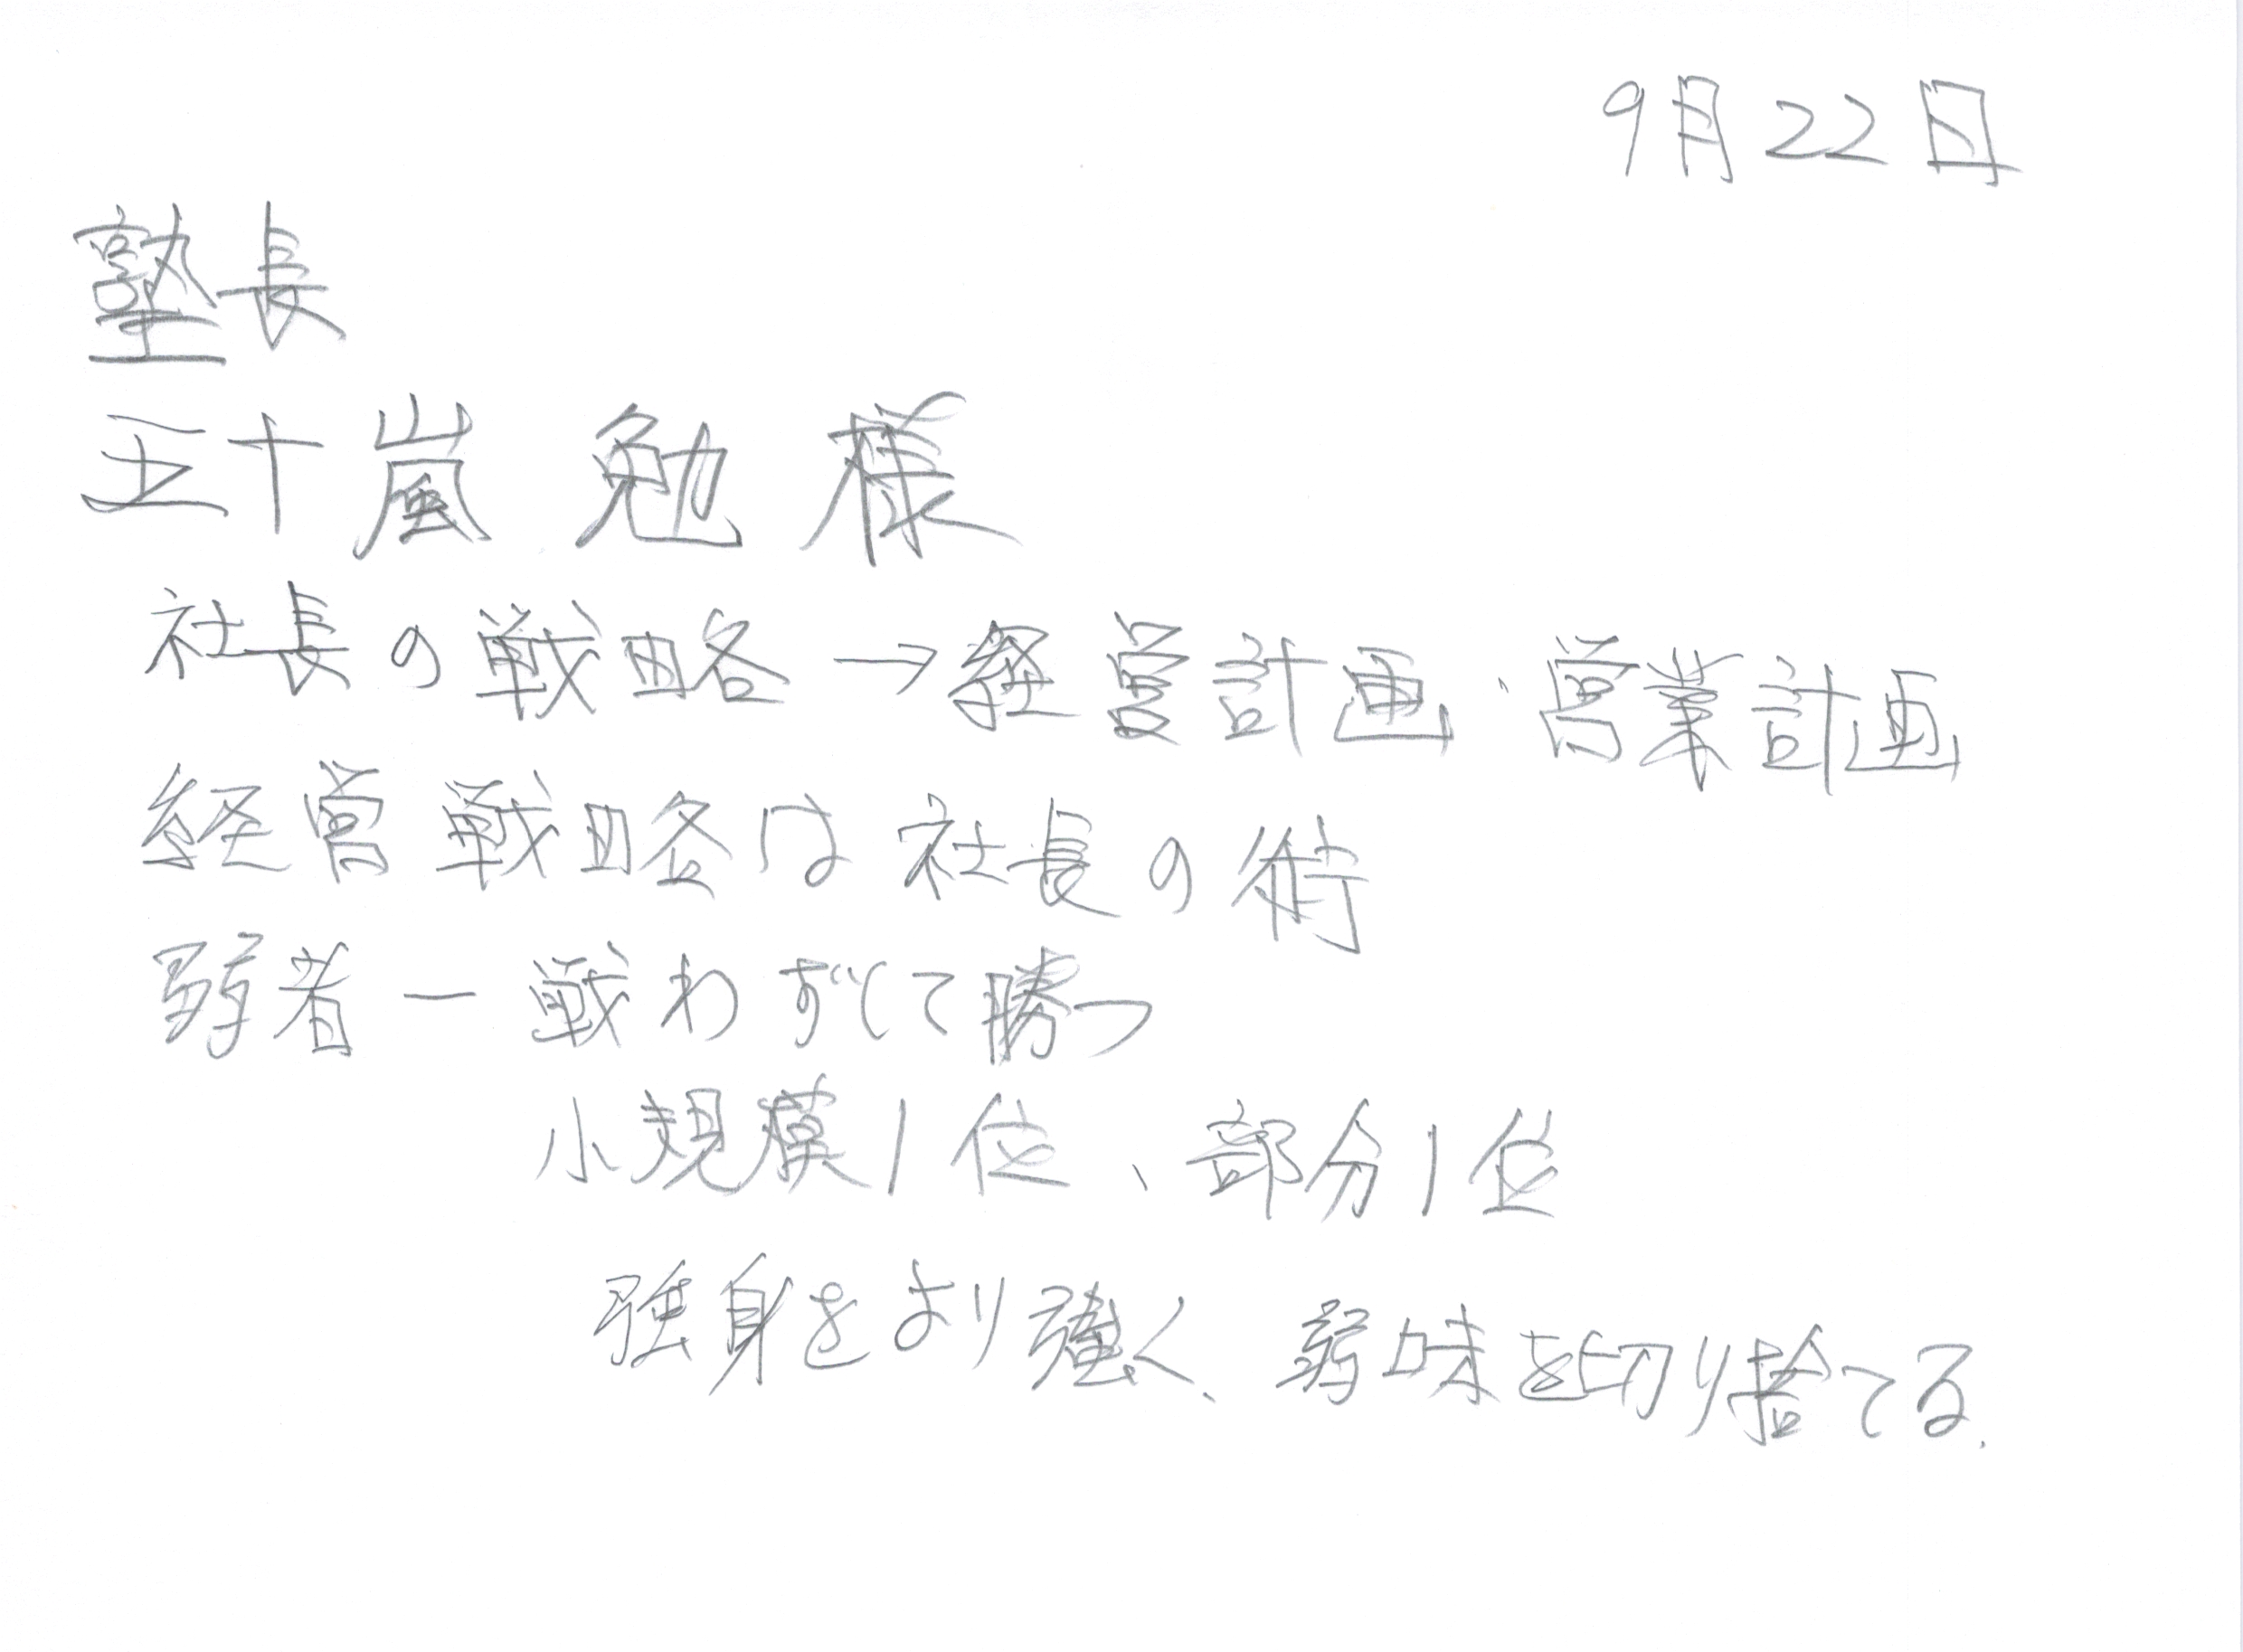 9月22日
塾長
五十嵐 勉 様
社長の戦略→経営計画、営業計画
経営戦略は社長の術
弱者ー戦わずして勝つ
小規模1位、部分1位
強身をより強く、弱味を切り捨てる.